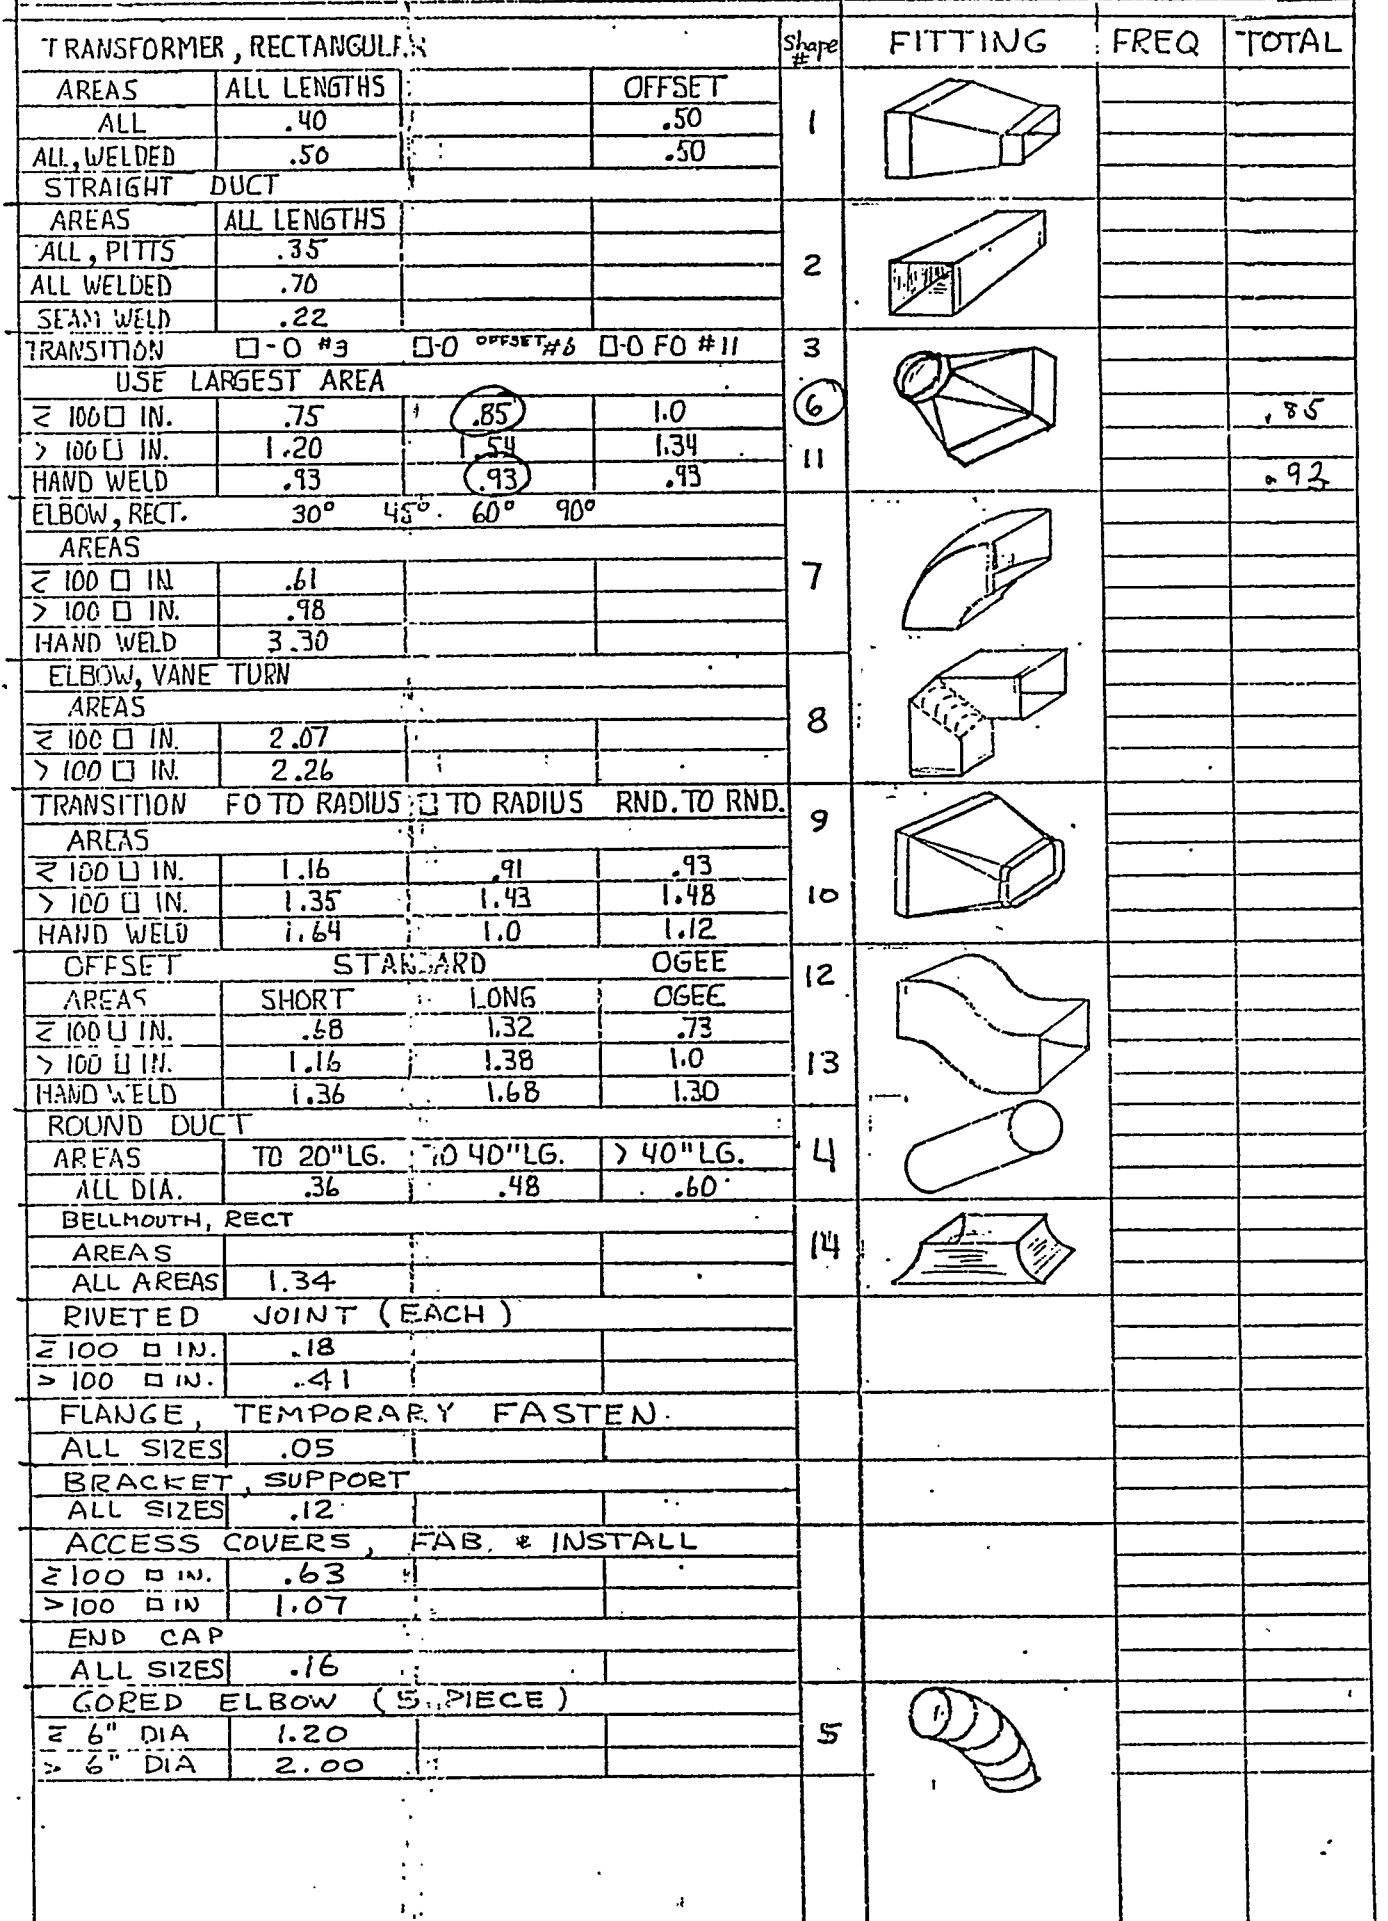 TRANSFORMER, RECTANGULAR Shape # FITTING FREQ TOTAL
AREAS ALL LENGTHS OFFSET
ALL .40 .50 1
ALL, WELDED .50 .50
STRAIGHT DUCT
AREAS ALL LENGTHS
ALL, PITTS .35
ALL WELDED .70 2
SEAM WELD .22
TRANSITION □-O #3 □-O OFFSET #6 □-O FO #11 3
USE LARGEST AREA
≤ 100 □ IN. .75 .85 1.0 6 .85
> 100 □ IN. 1.20 1.54 1.34 11
HAND WELD .93 .93 .93 .93
ELBOW, RECT. 30° 45° 60° 90°
AREAS
≤ 100 □ IN. .61 7
> 100 □ IN. .98
HAND WELD 3.30
ELBOW, VANE TURN
AREAS 8
≤ 100 □ IN. 2.07
> 100 □ IN. 2.26
TRANSITION FO TO RADIUS □ TO RADIUS RND. TO RND. 9
AREAS
≤ 100 □ IN. 1.16 .91 .93
> 100 □ IN. 1.35 1.43 1.48 10
HAND WELD 1.64 1.0 1.12
OFFSET STANDARD OGEE 12
AREAS SHORT LONG OGEE
≤ 100 □ IN. .68 1.32 .73
> 100 □ IN. 1.16 1.38 1.0 13
HAND WELD 1.36 1.68 1.30
ROUND DUCT
AREAS TO 20" LG. TO 40" LG. > 40" LG. 4
ALL DIA. .36 .48 .60
BELLMOUTH, RECT
AREAS 14
ALL AREAS 1.34
RIVETED JOINT (EACH)
≤ 100 □ IN. .18
> 100 □ IN. .41
FLANGE, TEMPORARY FASTEN.
ALL SIZES .05
BRACKET, SUPPORT
ALL SIZES .12
ACCESS COVERS, FAB. & INSTALL
≤ 100 □ IN. .63
> 100 □ IN 1.07
END CAP
ALL SIZES .16
GORED ELBOW (5 PIECE)
≤ 6" DIA 1.20 5
> 6" DIA 2.00